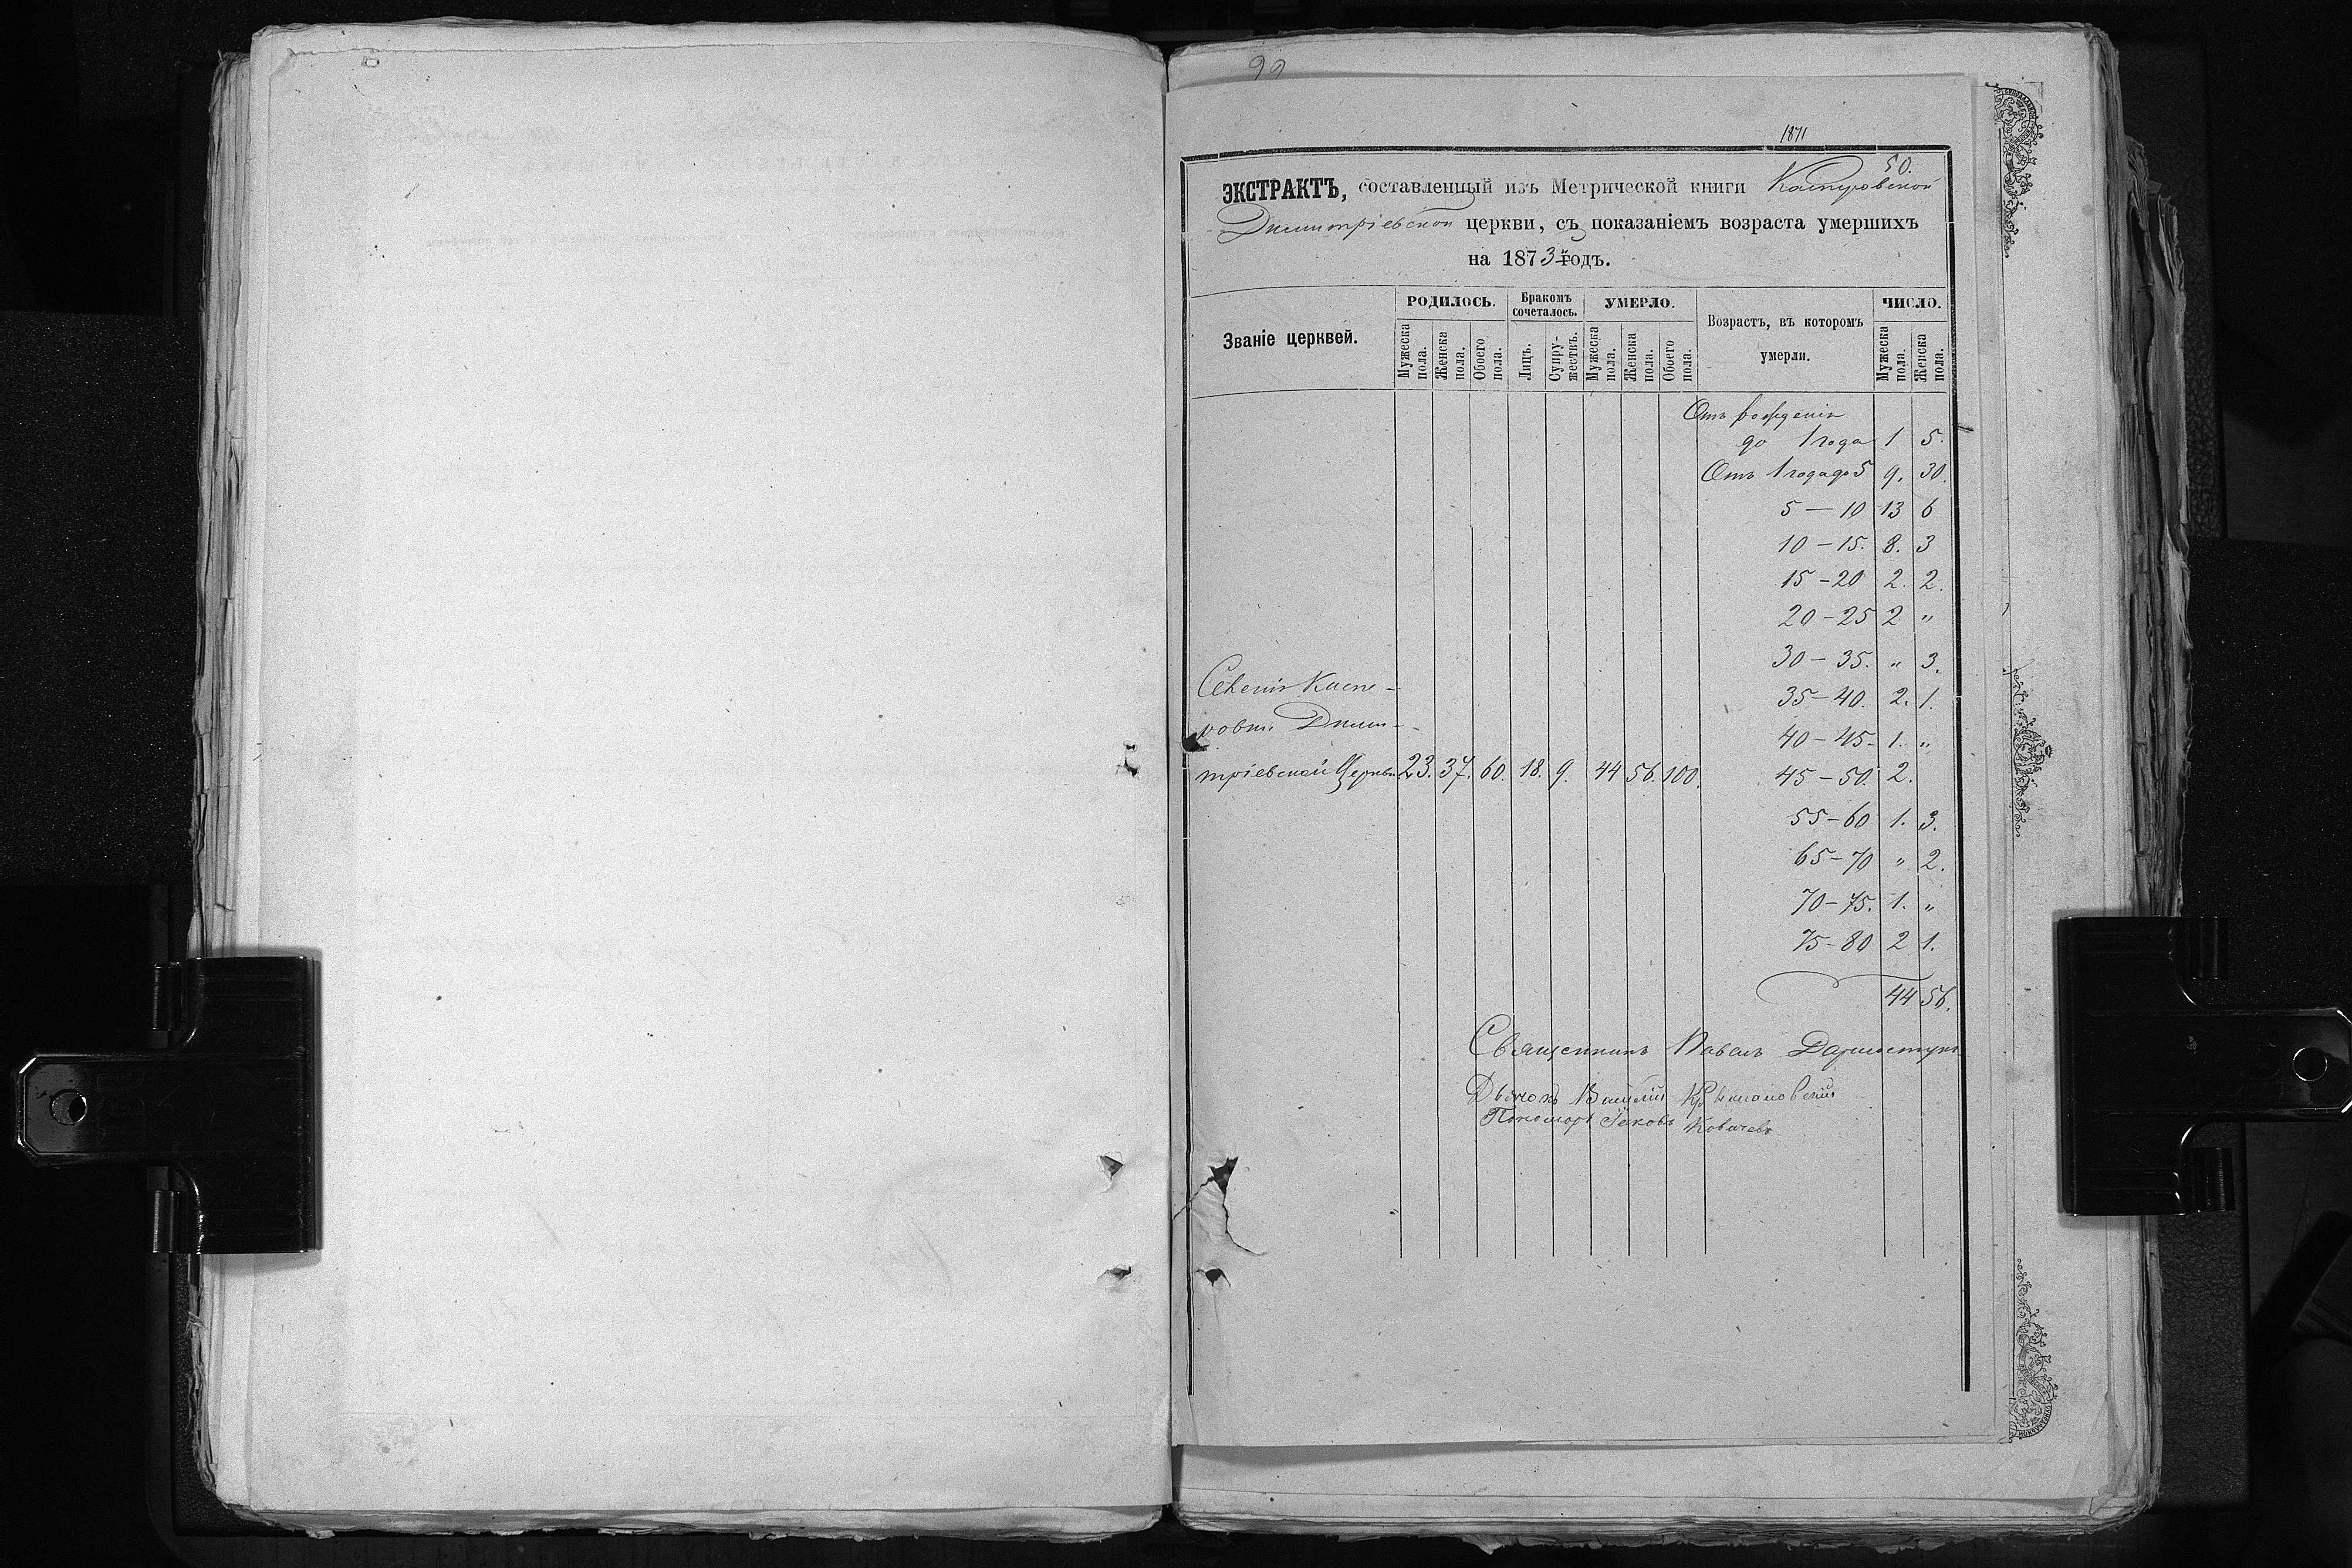 99
1871
50.
ЭКСТРАКТЪ, составленный изъ Метрической книги
Димитріевской церкви, съ показаніемъ возраста умершихъ
на 1873й годъ.
Званіе церквей.
РОДИЛОСЬ.
Бракомъ сочеталось.
УМЕРЛО.
Возрастъ, въ которомъ умерли.
ЧИСЛО.
Мужеска пола.
Женска пола.
Обоего пола.
Лицъ.
Супружествъ.
Мужеска пола.
Женска пола.
Обоего пола.
Мужеска пола.
Женска пола.
Отъ рожденія
до 1 года 1 5.
Отъ 1 года до 5 9. 30.
5 — 10 13 6
10 – 15. 8. 3
15 – 20 2. 2.
20 – 25 2 "
30 – 35. " 3.
35 – 40. 2. 1.
40 – 45. 1. "
45 – 50. 2.
55 – 60 1. 3.
65 – 70 " 2.
70 – 75. 1. "
75 – 80 2 1.
44 56.
Селенія
Дими-
тріевской Церкви 23. 37. 60. 18. 9. 44 56. 100.
Священникъ Павелъ
Дьячокъ Василій
Пономарь Іаковъ Ковачевъ